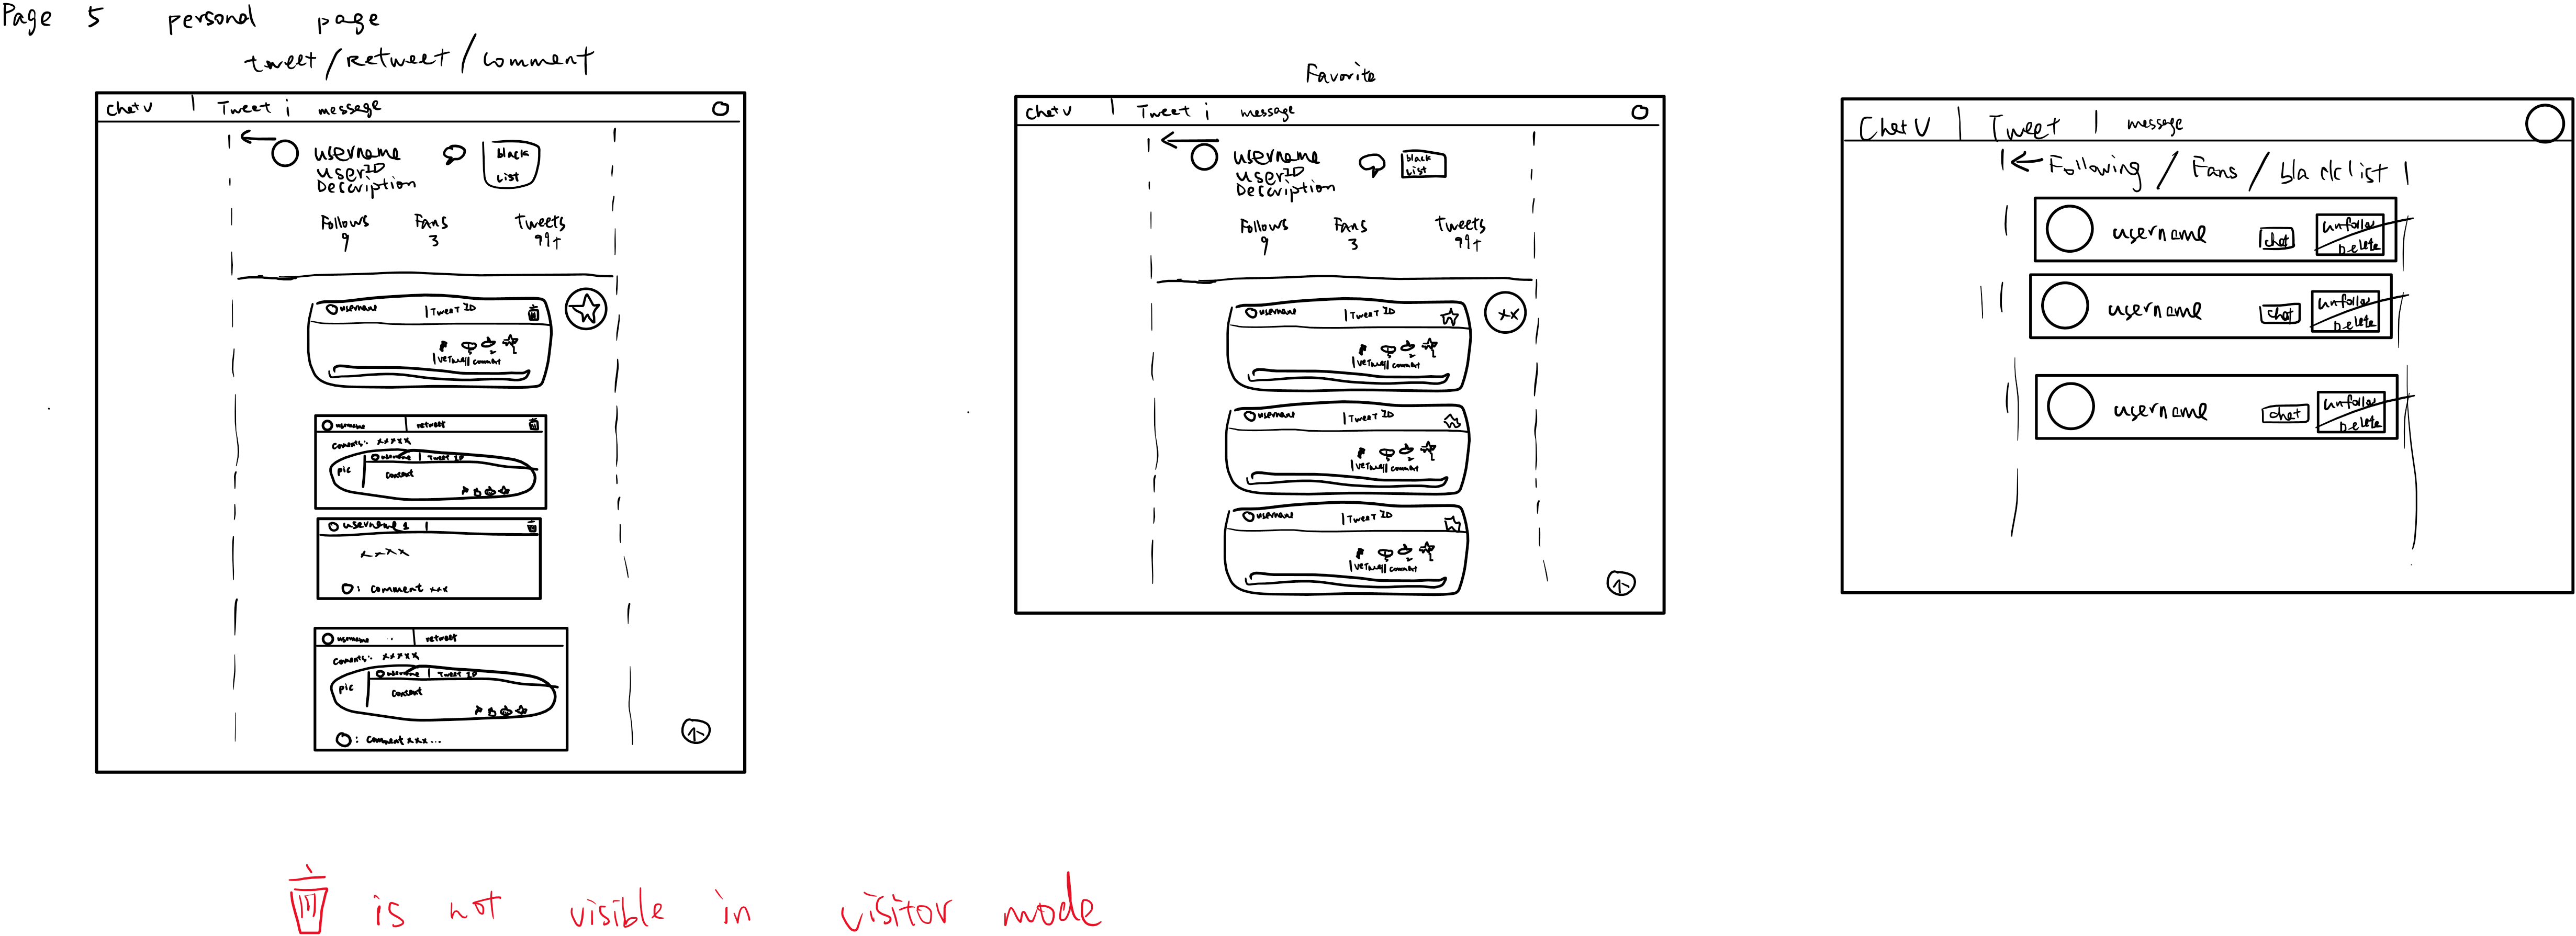 Page 5 personal page
tweet/retweet/comment
ChatU | Tweet | message
username
userID
Description
black
list
Follows Fans Tweets
9 3 99+
username | Tweet ID
comment
username | retweet
coments: xxxxx
username | Tweet ID
pic
content
username 1 |
xxxx
: comment xxx
username | retweet
coments: xxxxx
username | Tweet ID
pic
content
: comment xxx...
Favorite
ChatU | Tweet | message
username
userID
Description
black
list
Follows Fans Tweets
9 3 99+
xx
username | Tweet ID
comment
username | Tweet ID
comment
username | Tweet ID
comment
ChatU | Tweet | message
Following / Fans / blacklist
username chat unfollow
Delete
username chat unfollow
Delete
username chat unfollow
Delete
is not visible in visitor mode